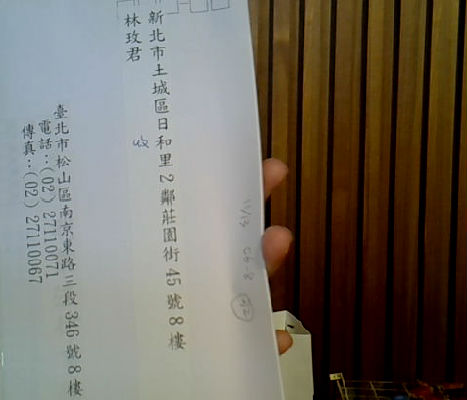 新北市土城區日和里2鄰莊園街45號8樓
林玫君
收
臺北市松山區南京東路三段346號8樓
電話：(02) 27110071
傳真：(02) 27110067
11/13